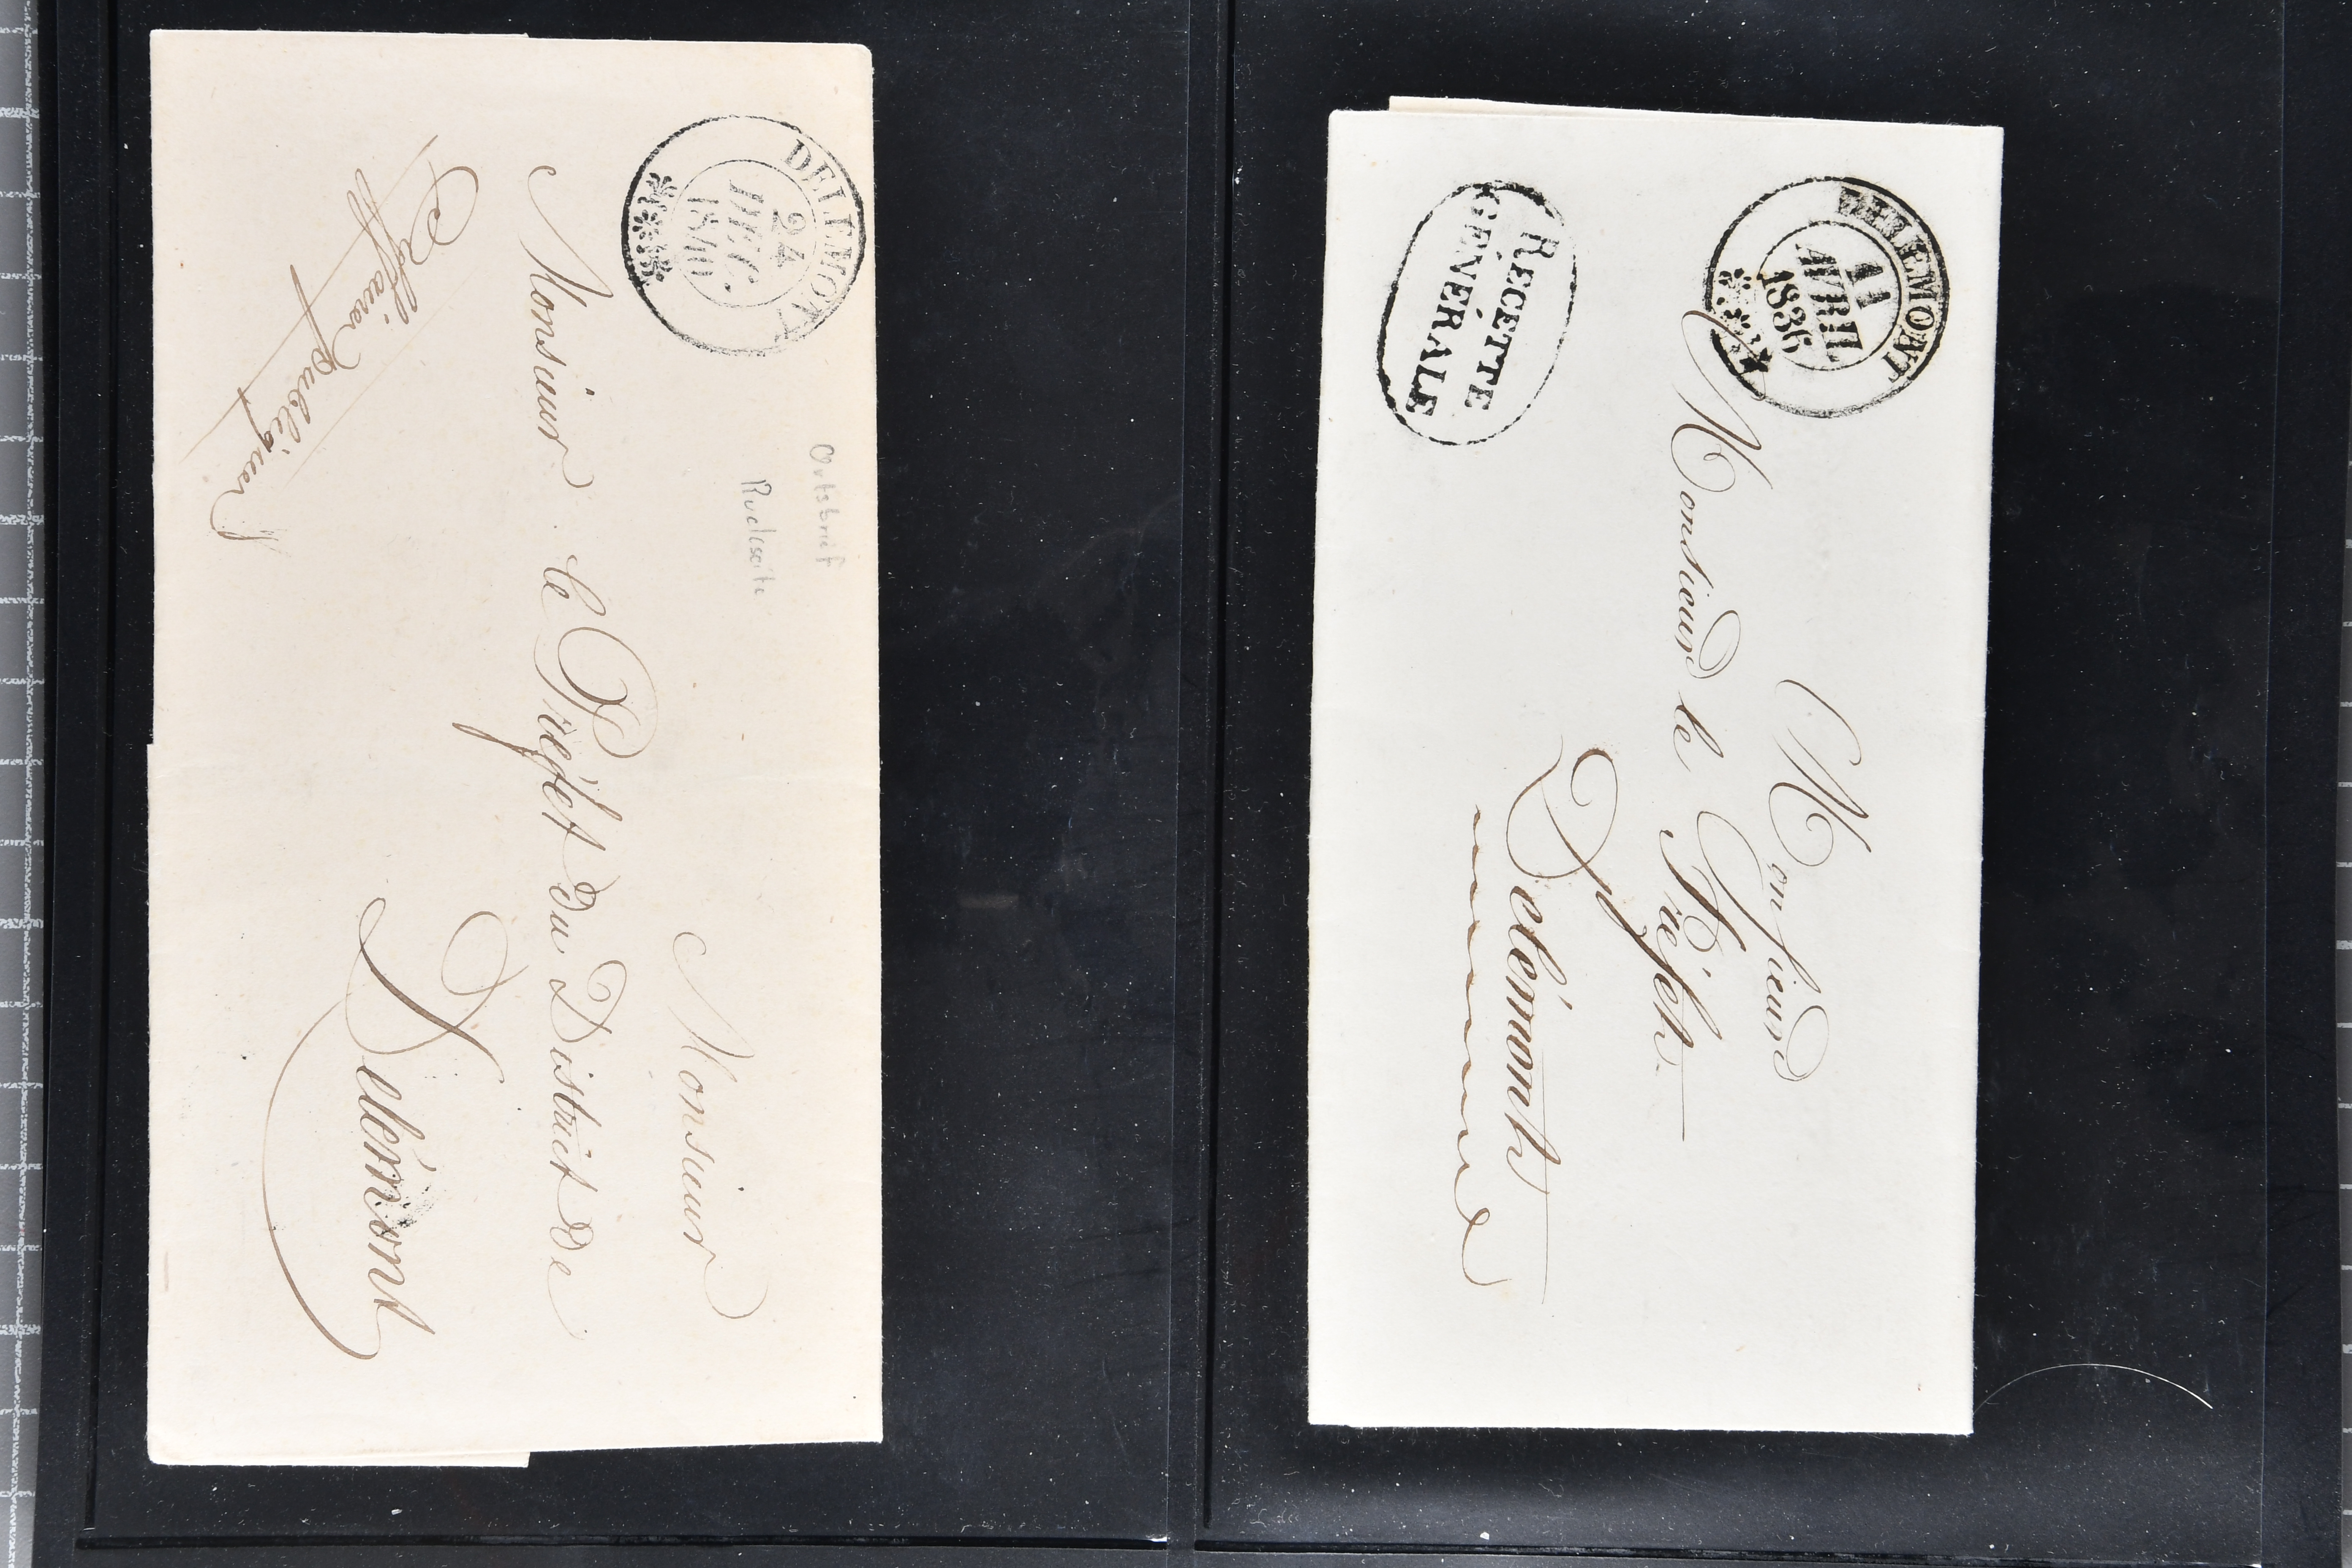 DELEMONT
24
DEC.
1840
Ortsbrief
Rückseite
Monsieur
Monsieur le Préfet du District de
Delémont
Affaires publiques
DELEMONT
11
AVRIL
1836
RECETTE
GÉNÉRALE
Monsieur
Monsieur le Préfet
Delémont